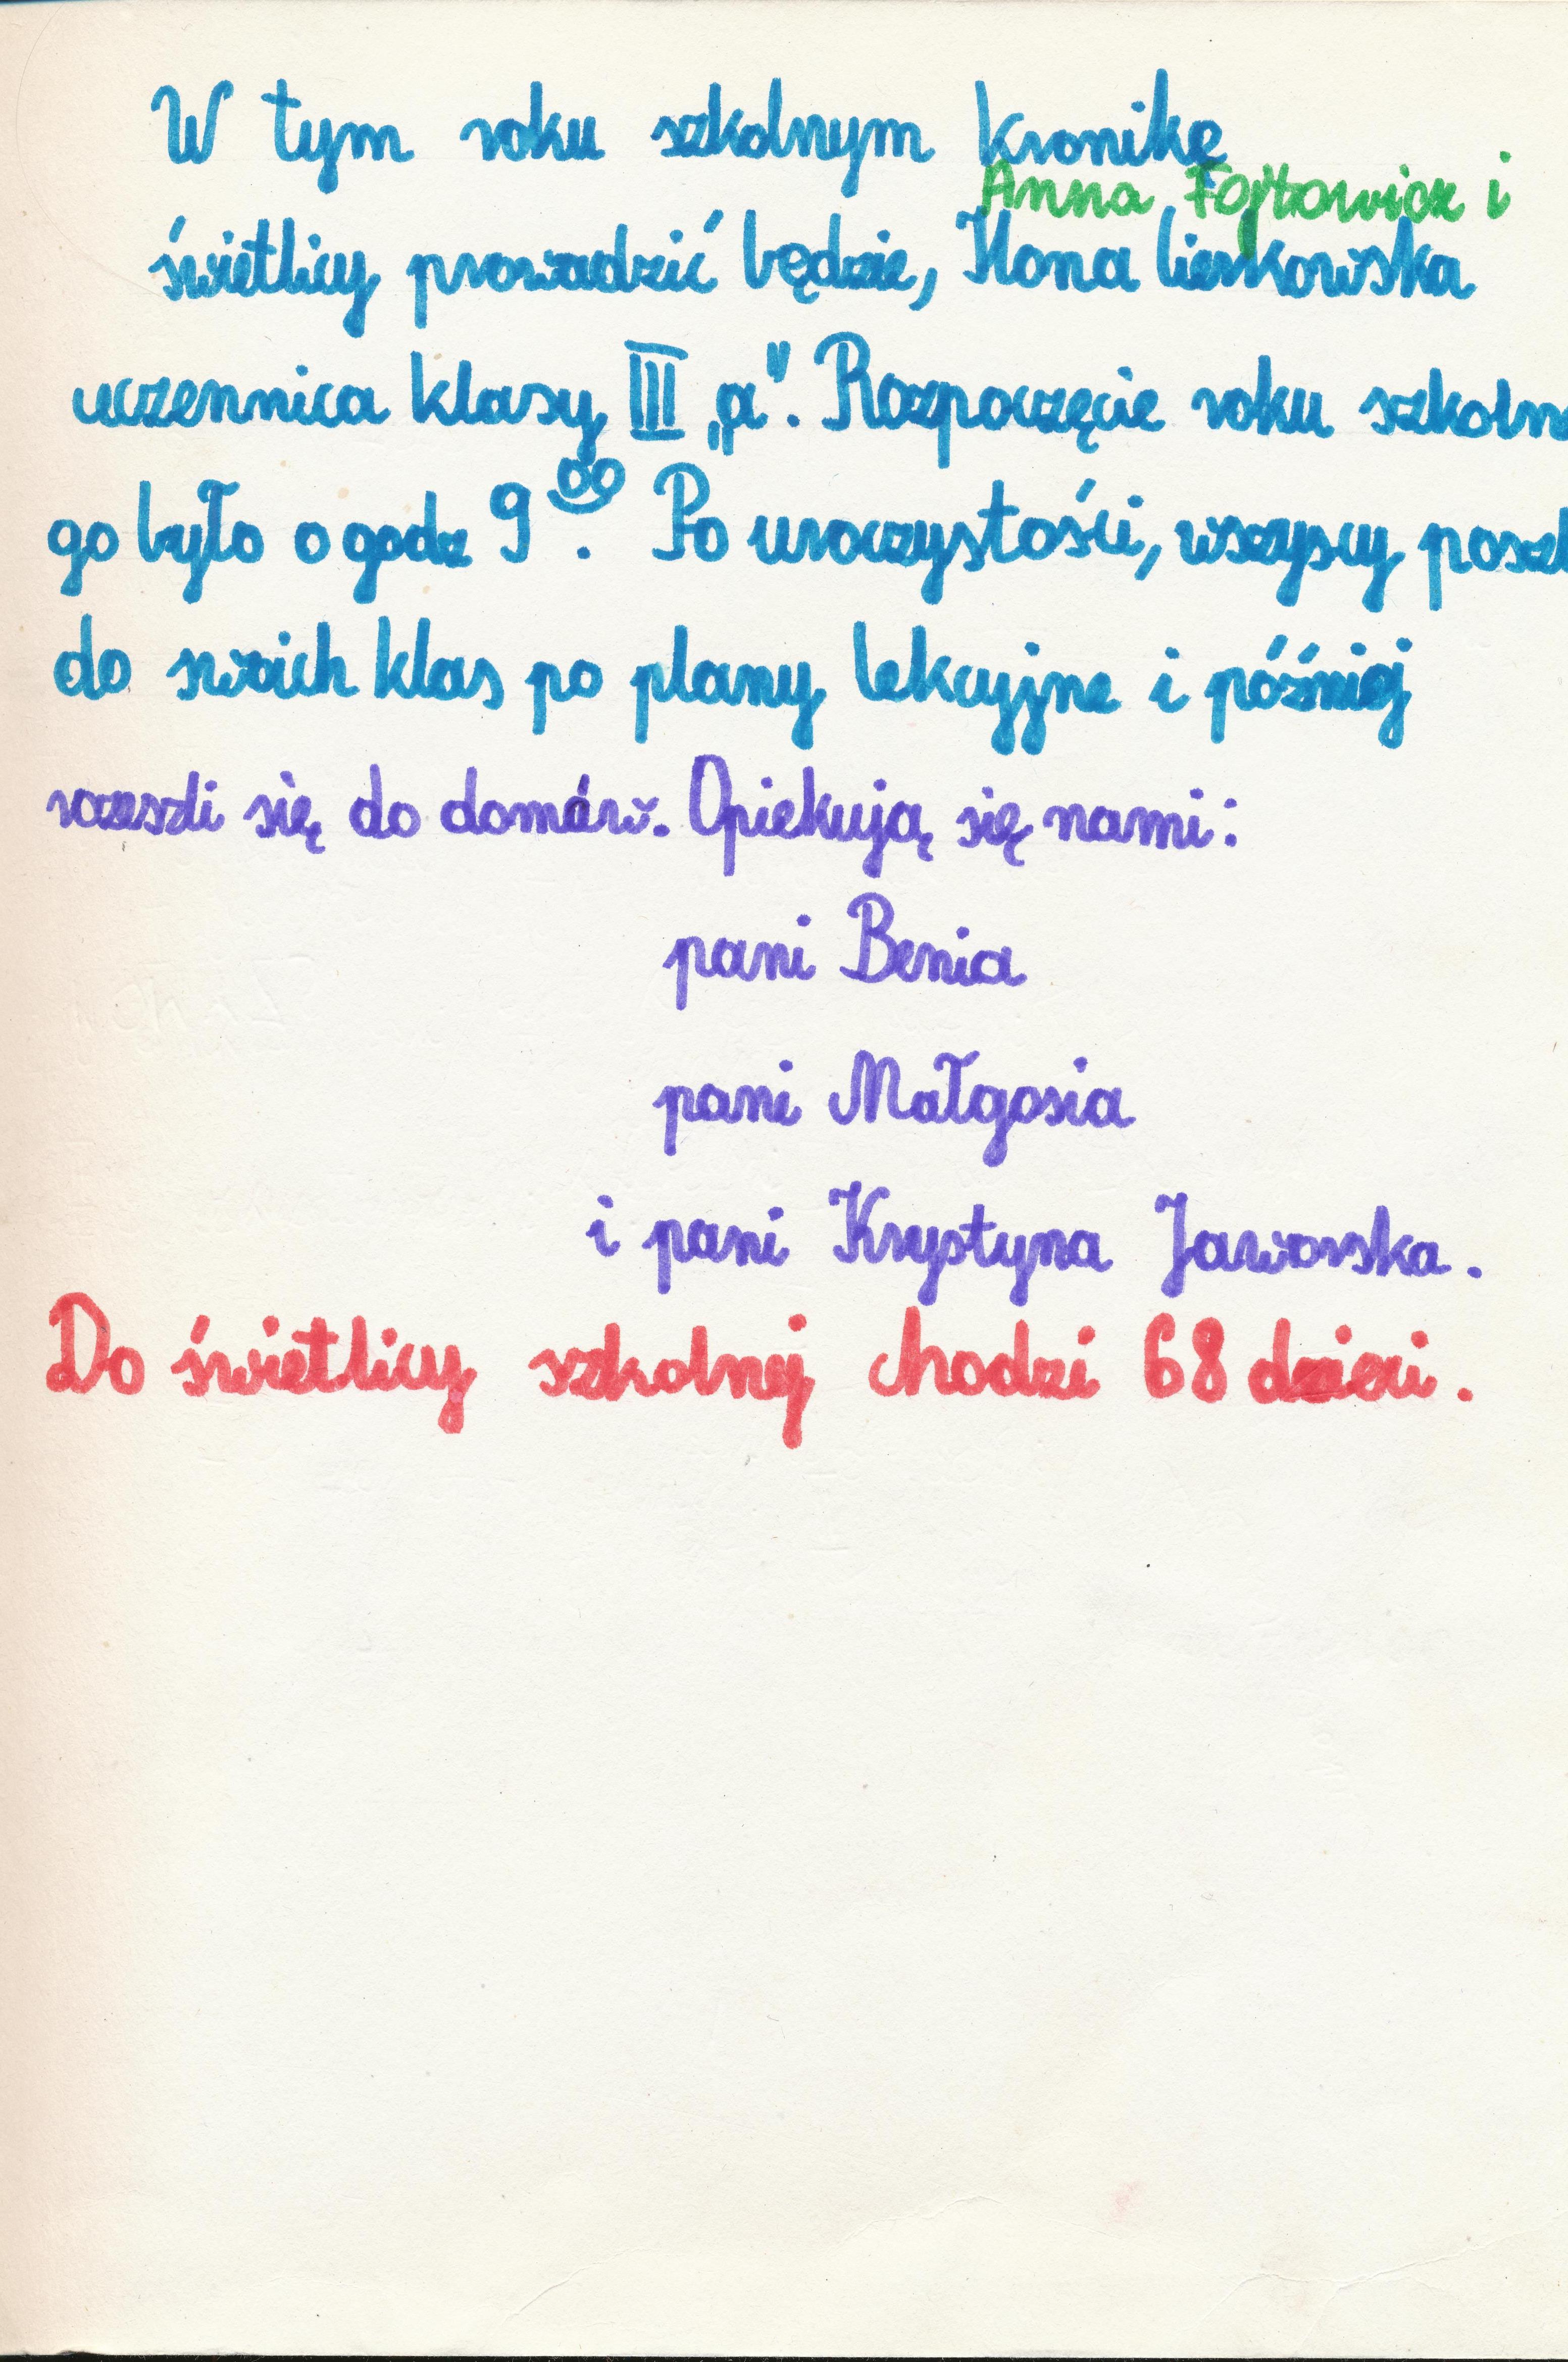 W tym roku szkolnym kronikę
Anna Fojtowicz i
świetlicy prowadzić będzie, Ilona Lieskowska
uczennica klasy III „a”. Rozpoczęcie roku szkolne
go było o godz 9⁰⁰. Po uroczystości, wszyscy poszl
do swoich klas po plany lekcyjne i później
rozeszli się do domów. Opiekują się nami:
pani Benia
pani Małgosia
i pani Krystyna Jaworska.
Do świetlicy szkolnej chodzi 68 dzieci.